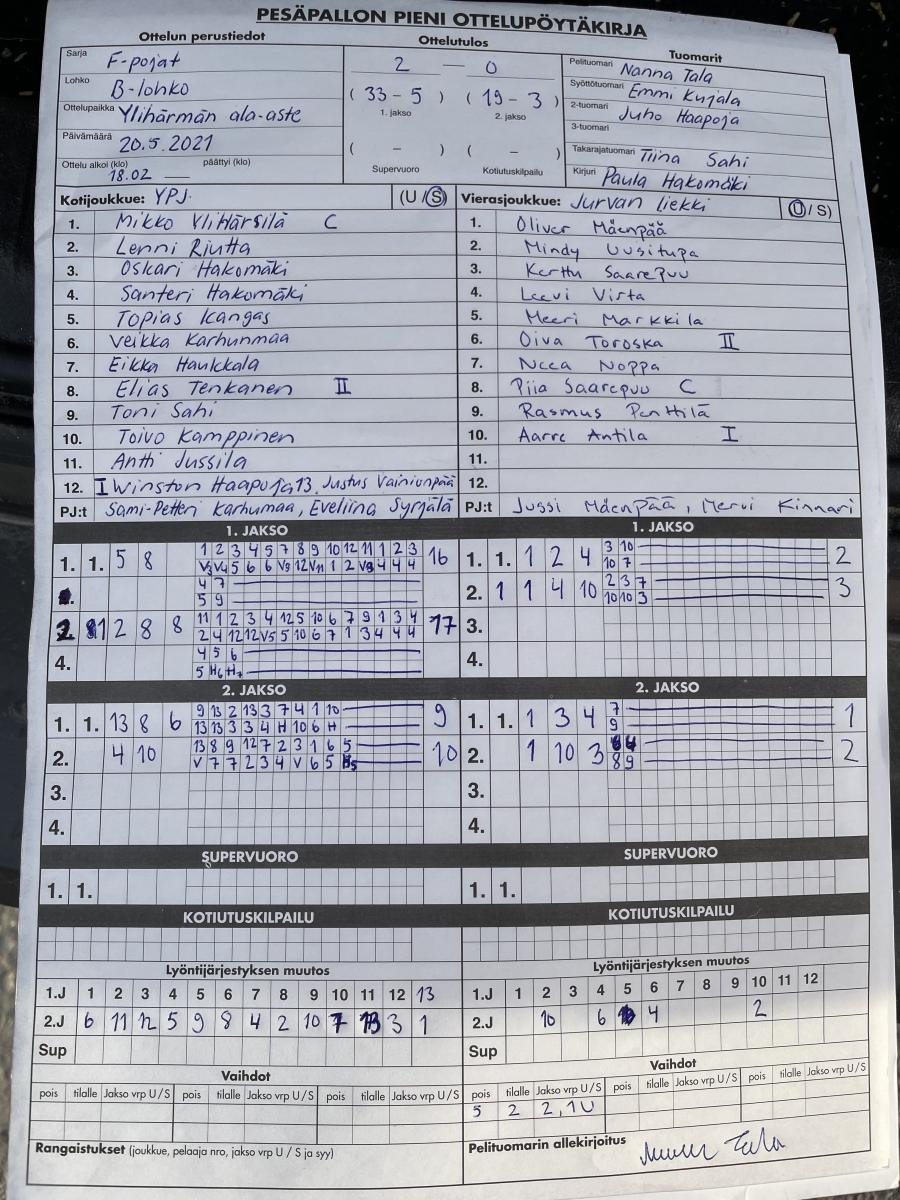 PESÄPALLON PIENI OTTELUPÖYTÄKIRJA
Ottelun perustiedot
Sarja F-pojat
Lohko B-lohko
Ottelupaikka Ylihärmän ala-aste
Päivämäärä 20.5.2021
Ottelu alkoi (klo) päättyi (klo)
18.02 —
Ottelutulos
2 — 0
( 33 - 5 ) ( 19 - 3 )
1. jakso 2. jakso
( - ) ( - )
Supervuoro Kotiutuskilpailu
Tuomarit
Pelituomari Nanna Tala
Syöttötuomari Emmi Kujala
2-tuomari Juho Haapoja
3-tuomari
Takarajatuomari Tiina Sahi
Kirjuri Paula Hakomäki
Kotijoukkue: YPJ (U / S)
1. Mikko Ylihärsilä C
2. Lenni Riutta
3. Oskari Hakomäki
4. Santeri Hakomäki
5. Topias Kangas
6. Veikka Karhunmaa
7. Eikka Haukkala
8. Elias Tenkanen II
9. Toni Sahi
10. Toivo Kamppinen
11. Antti Jussila
12. I Winston Haapoja 13. Justus Vainionpää
PJ:t Sami-Petteri Karhumaa, Eveliina Syrjälä
Vierasjoukkue: Jurvan liekki (U / S)
1. Oliver Mäenpää
2. Mindy Uusitupa
3. Kerttu Saarepuu
4. Leevi Virta
5. Meeri Markkila
6. Oiva Toroska II
7. Neea Noppa
8. Piia Saarepuu C
9. Rasmus Penttilä
10. Aarre Antila I
11.
12.
PJ:t Jussi Mäenpää, Mervi Kinnari
1. JAKSO
1. 1. 5 8
1 2 3 4 5 7 8 9 10 12 11 1 2 3
V3 V4 5 6 6 V9 12 V11 1 2 V3 4 4 4
16
4 7
5 9
2. 1 2 8 8
11 1 2 3 4 12 5 10 6 7 9 1 3 4
2 4 12 12 V5 5 10 6 7 1 3 4 4 4
17
4.
4 5 6
5 H6 H7
2. JAKSO
1. 1. 13 8 6
9 13 2 13 3 7 4 1 10
13 13 3 3 4 H 10 6 H
9
2. 4 10
13 8 9 12 7 2 3 1 6 5
V 7 7 2 3 4 V 6 5 H5
10
3.
4.
SUPERVUORO
1. 1.
KOTIUTUSKILPAILU
Lyöntijärjestyksen muutos
1.J 1 2 3 4 5 6 7 8 9 10 11 12 13
2.J 6 11 12 5 9 8 4 2 10 7 13 3 1
Sup
Vaihdot
pois tilalle Jakso vrp U / S pois tilalle Jakso vrp U / S pois tilalle Jakso vrp U / S
Rangaistukset (joukkue, pelaaja nro, jakso vrp U / S ja syy)
1. JAKSO
1. 1. 1 2 4
3 10
10 7
2
2. 1 1 4 10
2 3 7
10 10 3
3
3.
4.
2. JAKSO
1. 1. 1 3 4
7
9
1
2. 1 10 3
4
8 9
2
3.
4.
SUPERVUORO
1. 1.
KOTIUTUSKILPAILU
Lyöntijärjestyksen muutos
1.J 1 2 3 4 5 6 7 8 9 10 11 12
2.J 10 6 4 2
Sup
Vaihdot
pois tilalle Jakso vrp U / S pois tilalle Jakso vrp U / S pois tilalle Jakso vrp U / S
5 2 2, 1 U
Pelituomarin allekirjoitus